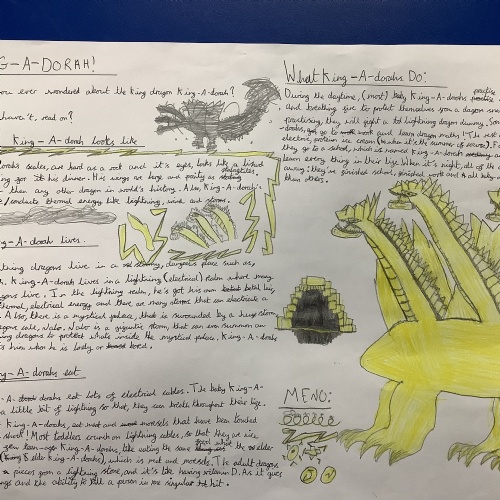 G-A-DORAH!
you ever wondered about the king dragon King-A-dorah?
haven't, read on?
ng-A-dorah looks like
dorahs scales, are hard as a rock and it's eyes, looks like a
ing got it his dinner. His wings are large and pointy as
than any other dragon in world's history. Also, King-A-dorah's
e/conducts thermal energy like lightning, wind and storms.
ng-A-dorah lives.
htning dragons live in a dangerous place such as,
A. King-A-dorah lives in a lightning (electrical) realm where many
agons live. In the lightning realm, he's got his own
hermal, electrical energy and there are many storms that can electricute a
Also, there is a mystical palace, that is surrounded by a huge storm,
is a gigantic storm, that can even summon an
ing dragons to protect whats inside the mystical palace. King-A-dorahs
ts him when he is lonely or bored.
ng-A-dorahs eat
-A-dorahs eat lots of electrical cables. The baby King-A-
a little bit of lightning so that, they can breath throughout their life.
King-A-dorahs, eat meat and morsels that have been touched
Most toddlers crunch on lightning cables, so that they as nice
teen-age King-A-dorahs, like eating the same good meat the elder
(King elder King-A-dorahs), which is meat and morsels. The adult dragons
a pieces from a lightning store, and it's like having vitamin D. As it gives
ngs and the ability to kill a person in one singular hit.
What King-A-dorahs Do:
During the daytime, (most) baby, King-A-dorahs practise
and breathing fire to protect themselves from a dragon
practising, they will fight a lightning dragon dummy.
-dorahs, go to work and learn dragon maths! The rest
electric, protein ice cream (when it's the summer of course).
they go to a school, which is named King-A-dorah
learn every thing in their life. When it's night, all of the
away; they've finished school, finished work and all baby
than others.
MENU: